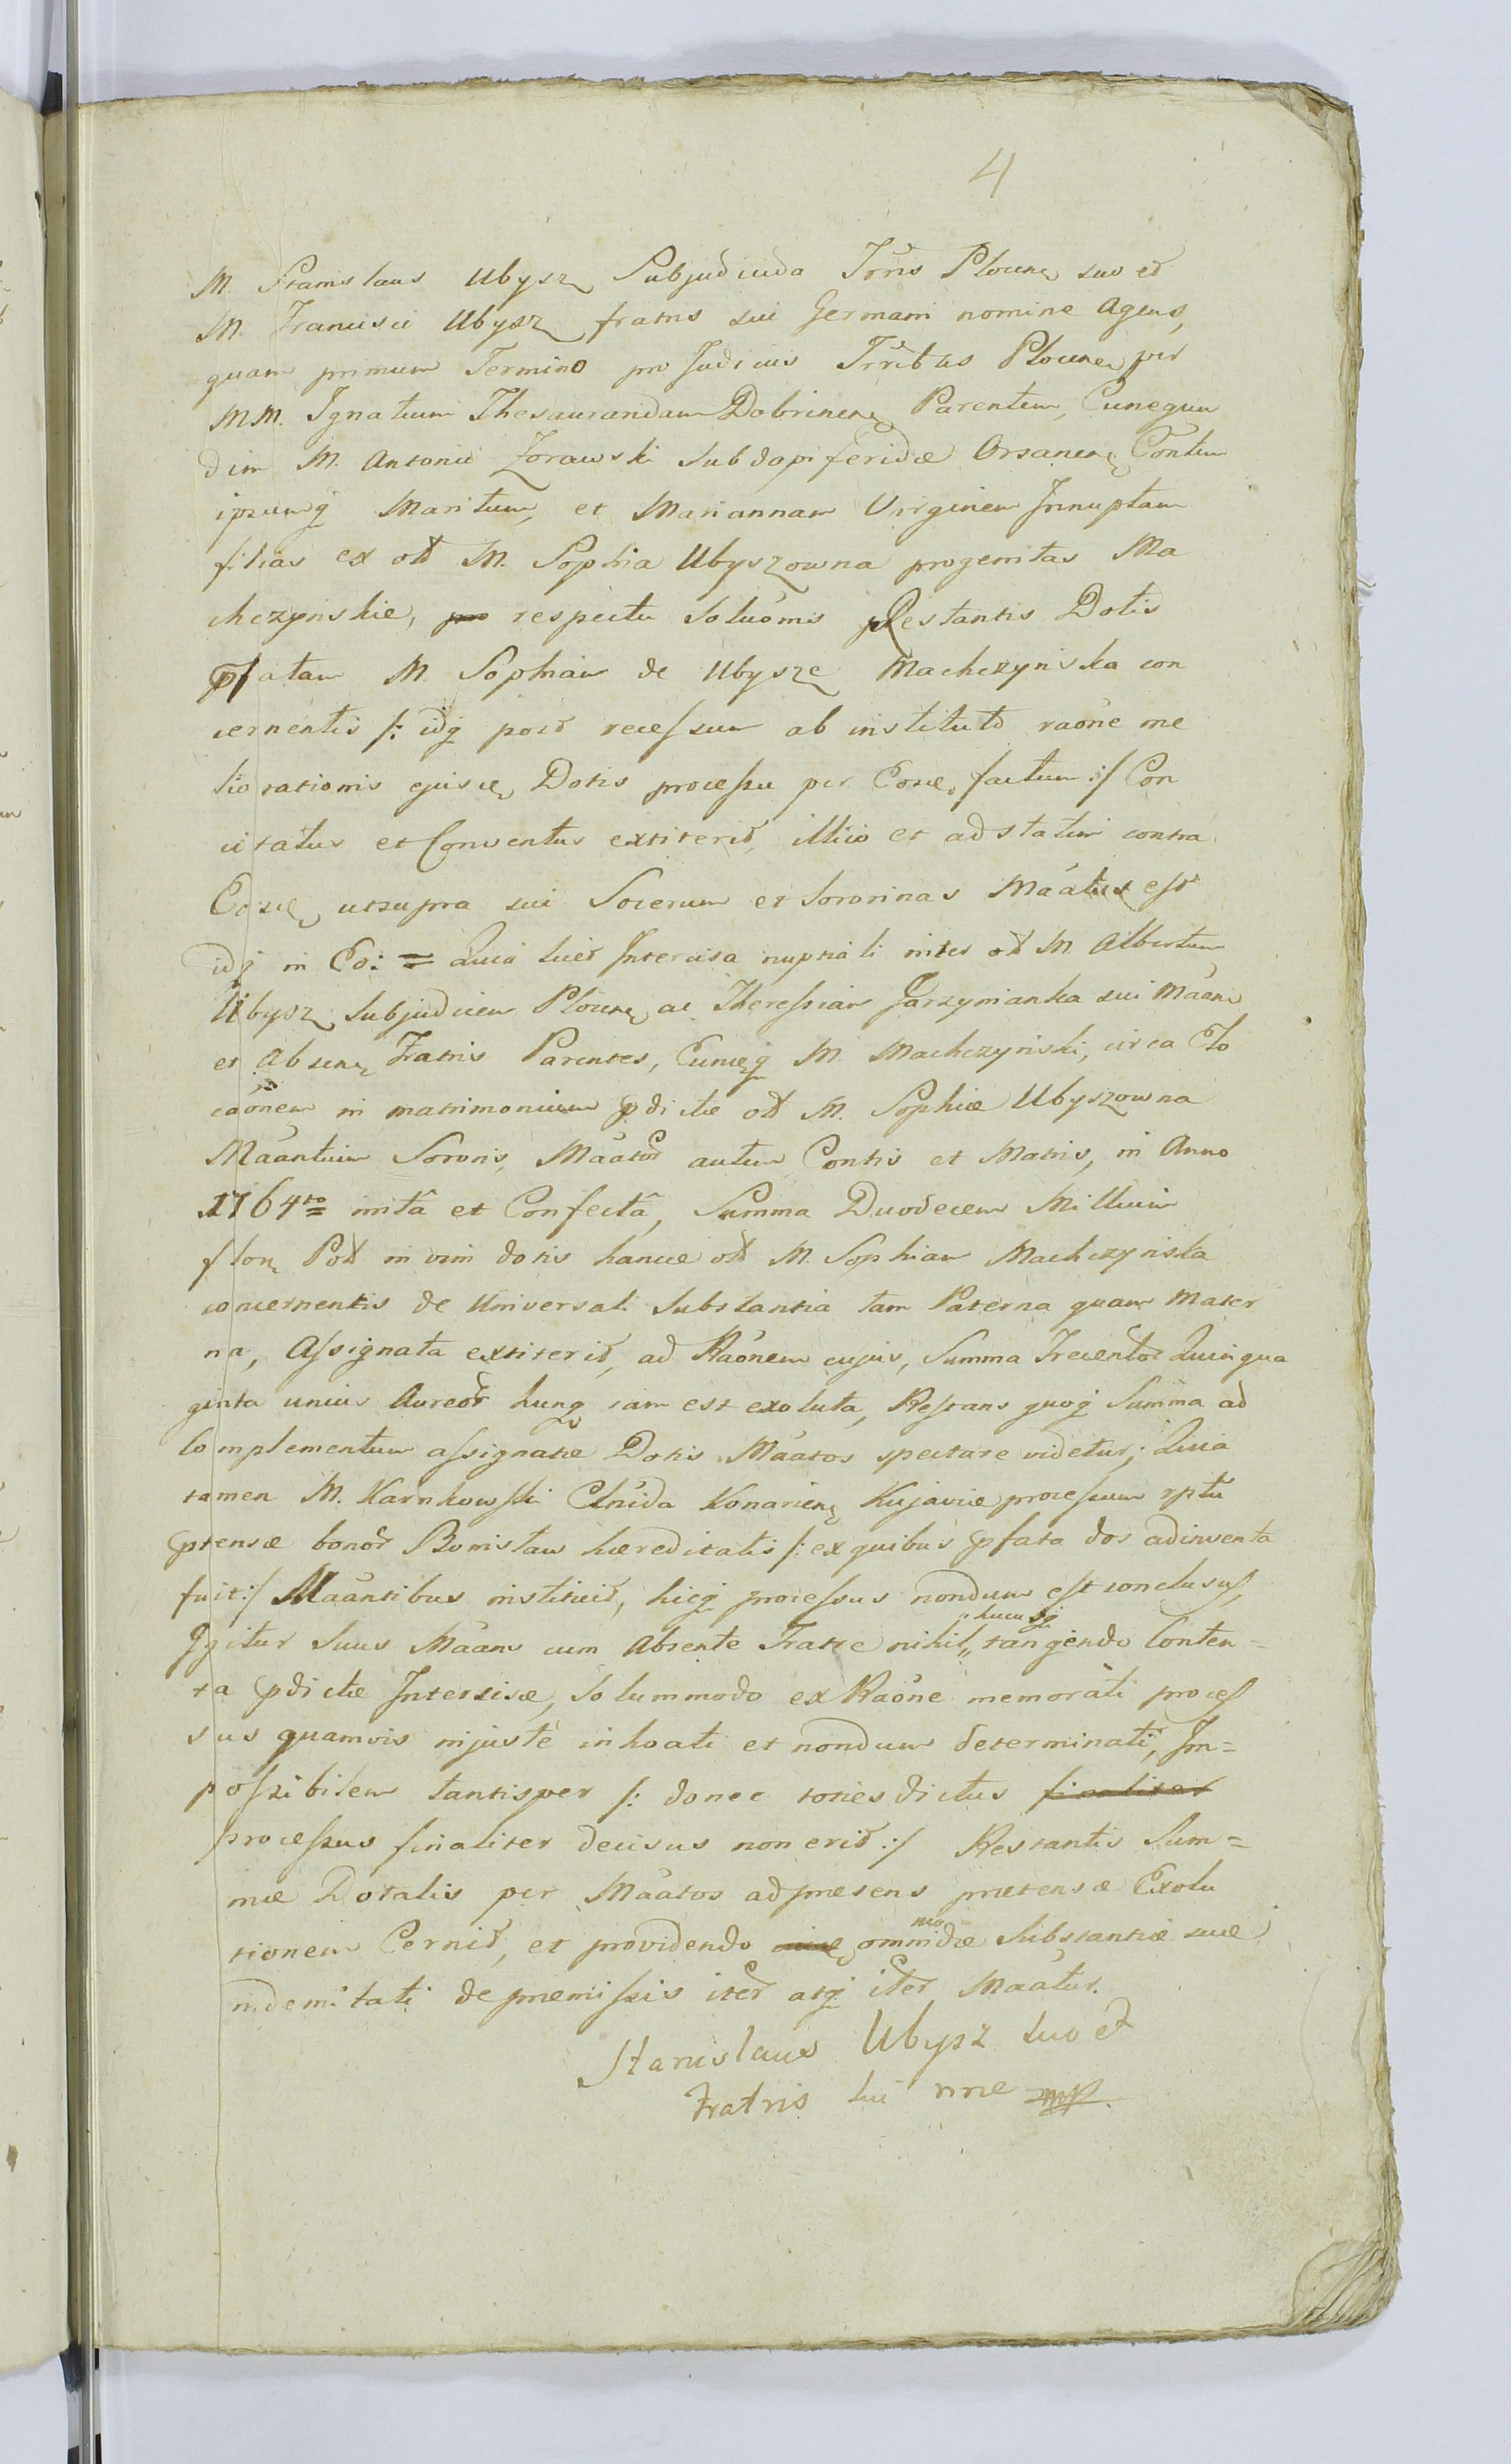 4
M. Stanislaus Ubysz Subjudicida Trris Plocen suo et
M. Francisci Ubysz fratris sui Germani nomine Agens,
quam primum Termino pro Judiciis Trribus Plocen per
MM. Ignatium Thesauraridam Dobrinen Parentem, Cunegun
dim M. Antonii Zorawski Subdapiferidæ Orsanen Contem
ipsumq Maritum, et Mariannam Virginem Innuptam
filias ex olt M. Sophia Ubyszowna progenitas Ma
chczynskie, respectu Soluōnis Restantis Dotis
pfatam M. Sophiam de Ubysze Machczynska con
cernentis /: idq post recessum ab instituto raōne me
liorationis ejusce Dotis processu per Eosce factum :/ Con
citatus et Conventus extiterit, illico et adstatim contra
Eosce utsupra sui Socerum et Sororinas Māatus est
idq in Eo: = quia licet Intercisa nuptiali inter olt M. Albertum
Ubysz Subjudicem Plocen ac Theressiam Jarzynianka sui Māan
et Absen Fratris Parentes, Eumcq M. Machczynski, circa Elo
caōnem in matrimonium pdictæ olt M. Sophiæ Ubyszowna
Māantium Sororis, Māator autem Contis et Matris, in Anno
1764to initâ et Confectâ, Summa Duodecem Millium
flon Pol in vim dotis hancce olt M. Sophiam Machczynska
concernentis de Universali Substantia tam Paterna quam Mater
na, Assignata extiterit, ad Raōnem cujus, Summa Trecentor Quinqua
ginta unius Aureor hung iam est exoluta, Restans quoq Summa ad
Complementum assignatæ Dotis Māatos spectare videtur; Quia
tamen M. Karnkowski Clnida Konarien Kujaviæ processum rptu
ptensæ bonor Bonislaw hæreditatis /: ex quibus pfata dos adinventa
fuit :/ Māantibus instituit, hicq processus nondum est conclusus,
Igitur Suus Māans cum Absente Fratre nihil „ hucusq „ tangendo Conten=
ta pdictæ Intercisæ, Solummodo ex Raōne memorati proces
sus quamvis injustè inhoati et nondum determinati, Im=
possibilem tantisper /: donec toties dictus finaliter
processus finaliter decisus non erit :/ Restantis Sum=
mæ Dotalis per Māatos ad præsens prætensæ Exolu
tionem Cernit, et providendo omnimodæ Substantiæ suæ
indemnitati de præmissis iter atq iter Māatur.
Stanislaus Ubysz suo et
Fratris sui nne mp.